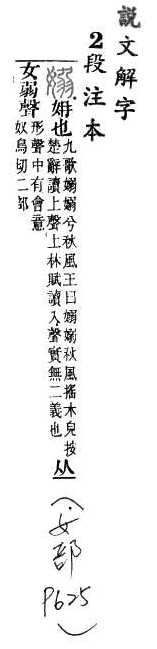 說文解字
2段注本
嫋 姌也 九歌嫋嫋兮秋風王曰嫋嫋秋風搖木皃按
楚辭讀上聲上林賦讀入聲實無二義也 从
女弱聲 形聲中有會意
奴鳥切二部
(女部 P625)